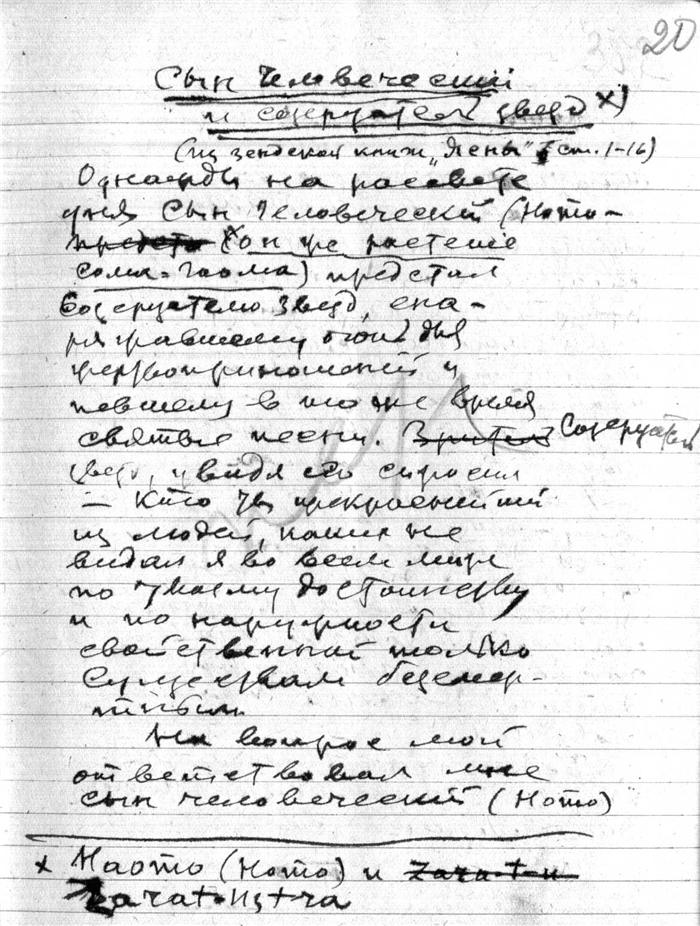 20
Сын Человеческий
и созерцатель звезд x)
(из зендской книги „Ясны" ст. 1-16)
Однажды на рассвете
дня Сын Человеческий (Homo-
x (он же растение
сома-гаома) предстал
Созерцателю звезд, сна-
ряжавшему огонь для
жертвоприношений и
певшему в то же время
святые песни. Зритель Созерцатель
звезд, увидя его спросил
– Кто ты прекраснейший
из людей, каких не
видал я во всем мире
по твоему достоинству
и по наружности
свойственной только
Существам безсмер-
тным.
На вопрос мой
ответствовал мне
сын человеческий (Homo)
x Haomo (Homo) и Zarat-u
Zarat-Us-t-ra